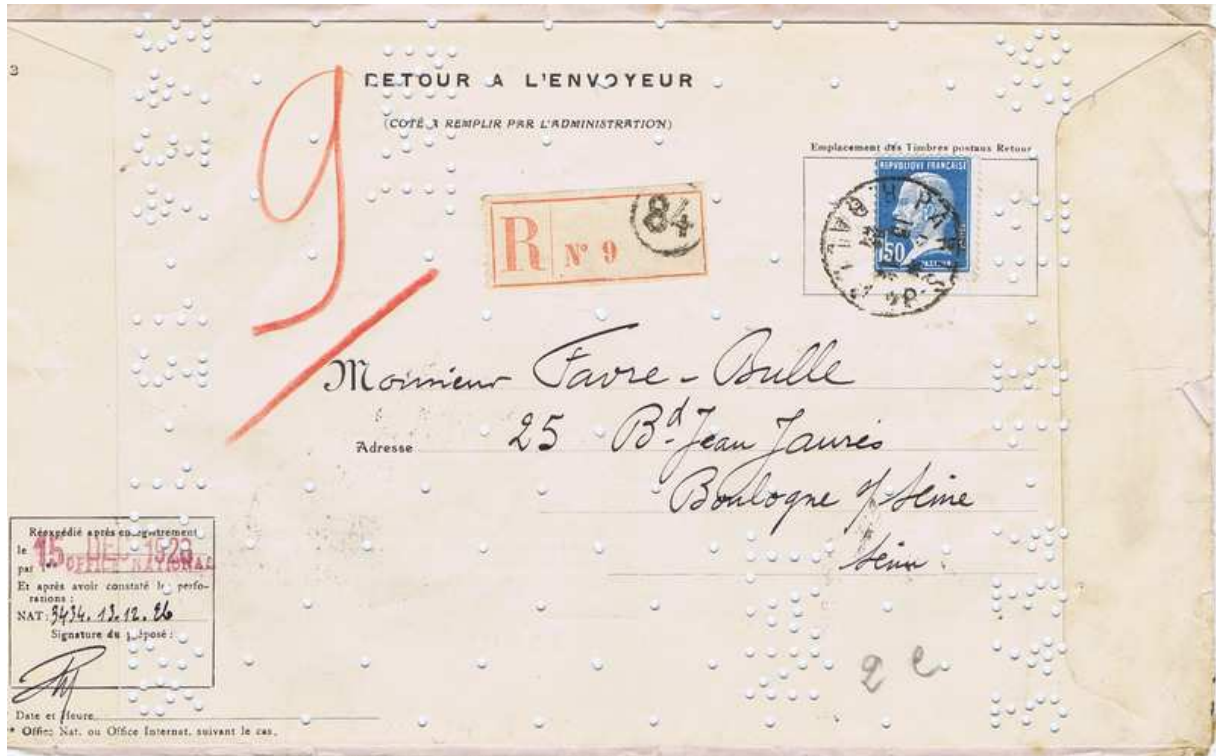 3
RETOUR A L'ENVOYEUR
(COTÉ A REMPLIR PAR L'ADMINISTRATION)
Emplacement des Timbres postaux Retour
REPVBLIQUE FRANÇAISE
1F50
PASTEUR
9
R N° 9
84
Monsieur Favre-Bulle
Adresse 25 Bd Jean Jaurès
Boulogne s/ Seine
Seine
Réexpédié après enregistrement
le 15 DEC 1926
par l' * OFFICE NATIONAL
Et après avoir constaté les perfo-
rations :
NAT: 3434. 13.12.26
Signature du préposé :
Date et Heure
* Office Nat. ou Office Internat. suivant le cas.
2 e